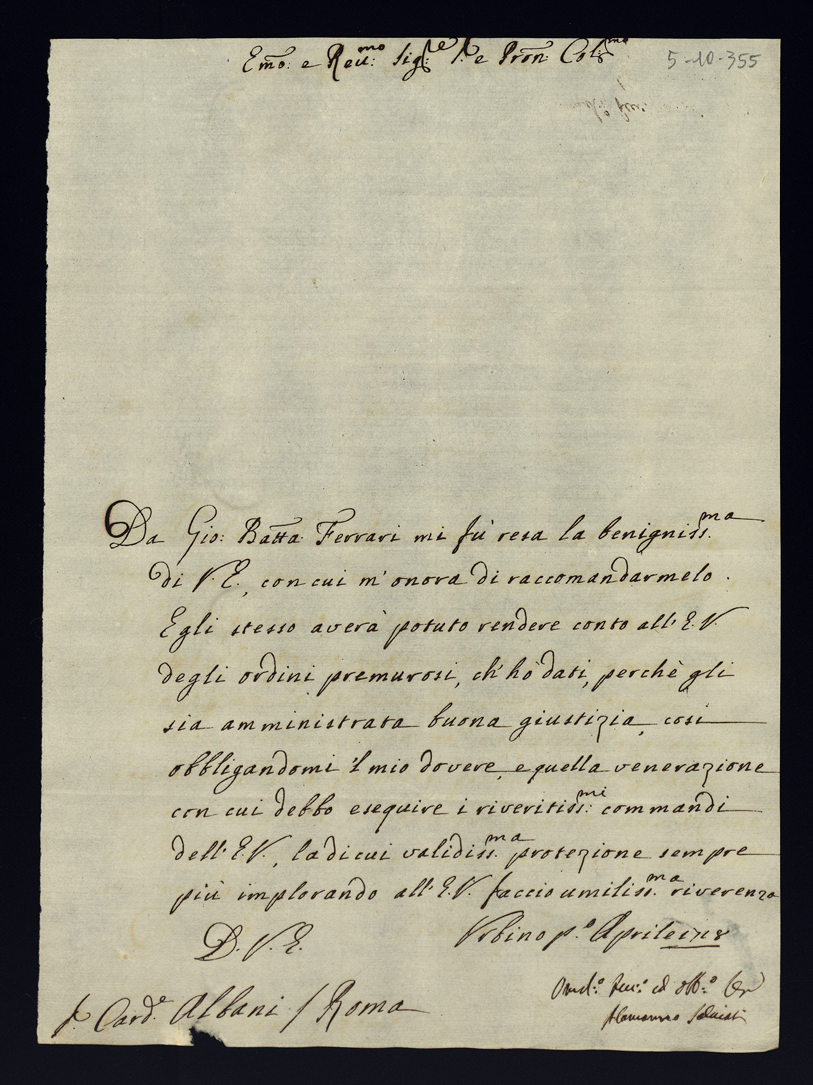 Em̃o: e Reu:mo Sig:re S.e e Pron̄ Col:mo
5-10-355
Da Gio: Batt̃a Ferrari mi fù resa la benigniss:ma
di V.E., con cui m'onora di raccomandarmelo.
Egli stesso averà potuto rendere conto all'E.V.
degli ordini premurosi, ch'hò dati, perchè gli
sia amministrata buona giustizia, così
obbligandomi 'l mio dovere, e quella venerazione
con cui debbo eseguire i riveritiss:mi commandi
dell'E.V., la di cui validiss:ma protezione sempre
più implorando all'E.V. faccio umiliss:ma riverenza
D.V.E.
Urbino p.o Aprile 1718
Card.e Albani / Roma
ed obb:o
Alamanno Salviati